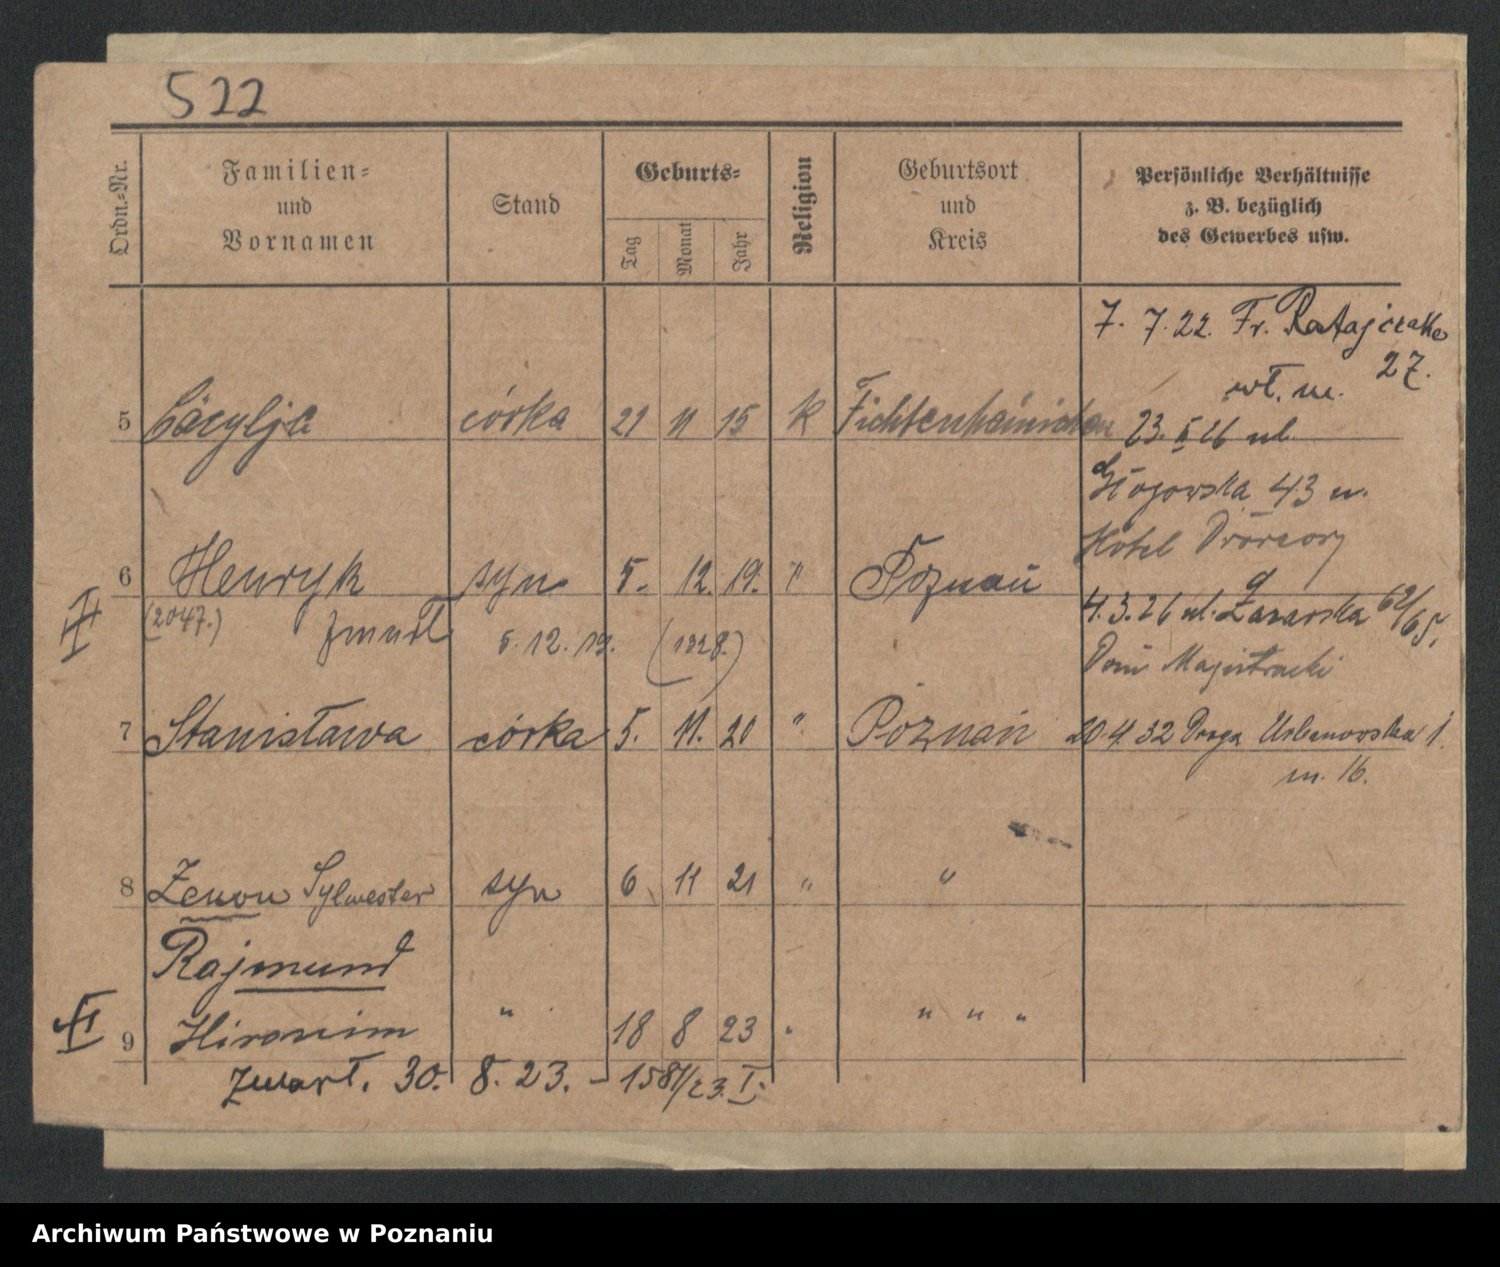 522
Ordn.-Nr.
Familien-
und
Vornamen
Stand
Geburts-
Tag
Monat
Jahr
Religion
Geburtsort
und
Kreis
Persönliche Verhältnisse
z. B. bezüglich
des Gewerbes usw.
7. 7.22. Fr. Ratajczaka
27.
5 Cäcylja córka 21 11 15 k Fichtenhainichen
23. II 26 ul.
Głogowska 43 u.
Hotel Dworcowy
6 Henryk syn 5. 12. 19. " Poznań
4.3.26 ul.
II
(2047.) zmarł 5.12.19. (1228.)
Dom Magistracki
7 Stanisława córka 5. 11. 20 " Poznań 20 4 32 Droga Urbanowska 1.
m. 16.
8 Zenon Sylwester syn 6 11 21 " "
Rajmund
II
9 Hironim " 18 8 23 " " " "
zmart. 30. 8. 23. - 1581/23. I.
Archiwum Państwowe w Poznaniu